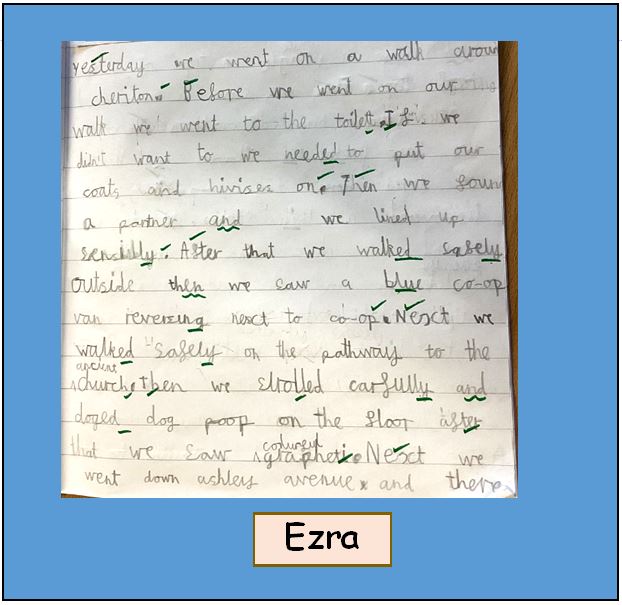 yesterday we went on a walk aroun
cheriton. Before we went on our
walk we went to the toilett. If we
didn't want to we needed to put our
coats and hivises on. Then we foun
a partner and we lined up
sensibly. After that we walked safely
outside then we saw a blue co-op
van reverzing nesct to co-op. Nesct we
walked safely on the pathway to the
ancient
church, then we strolled carfully and
doged dog poop on the floor after
that we saw colurful
grapheti. Nesct we
went down ashley avenue and there
Ezra